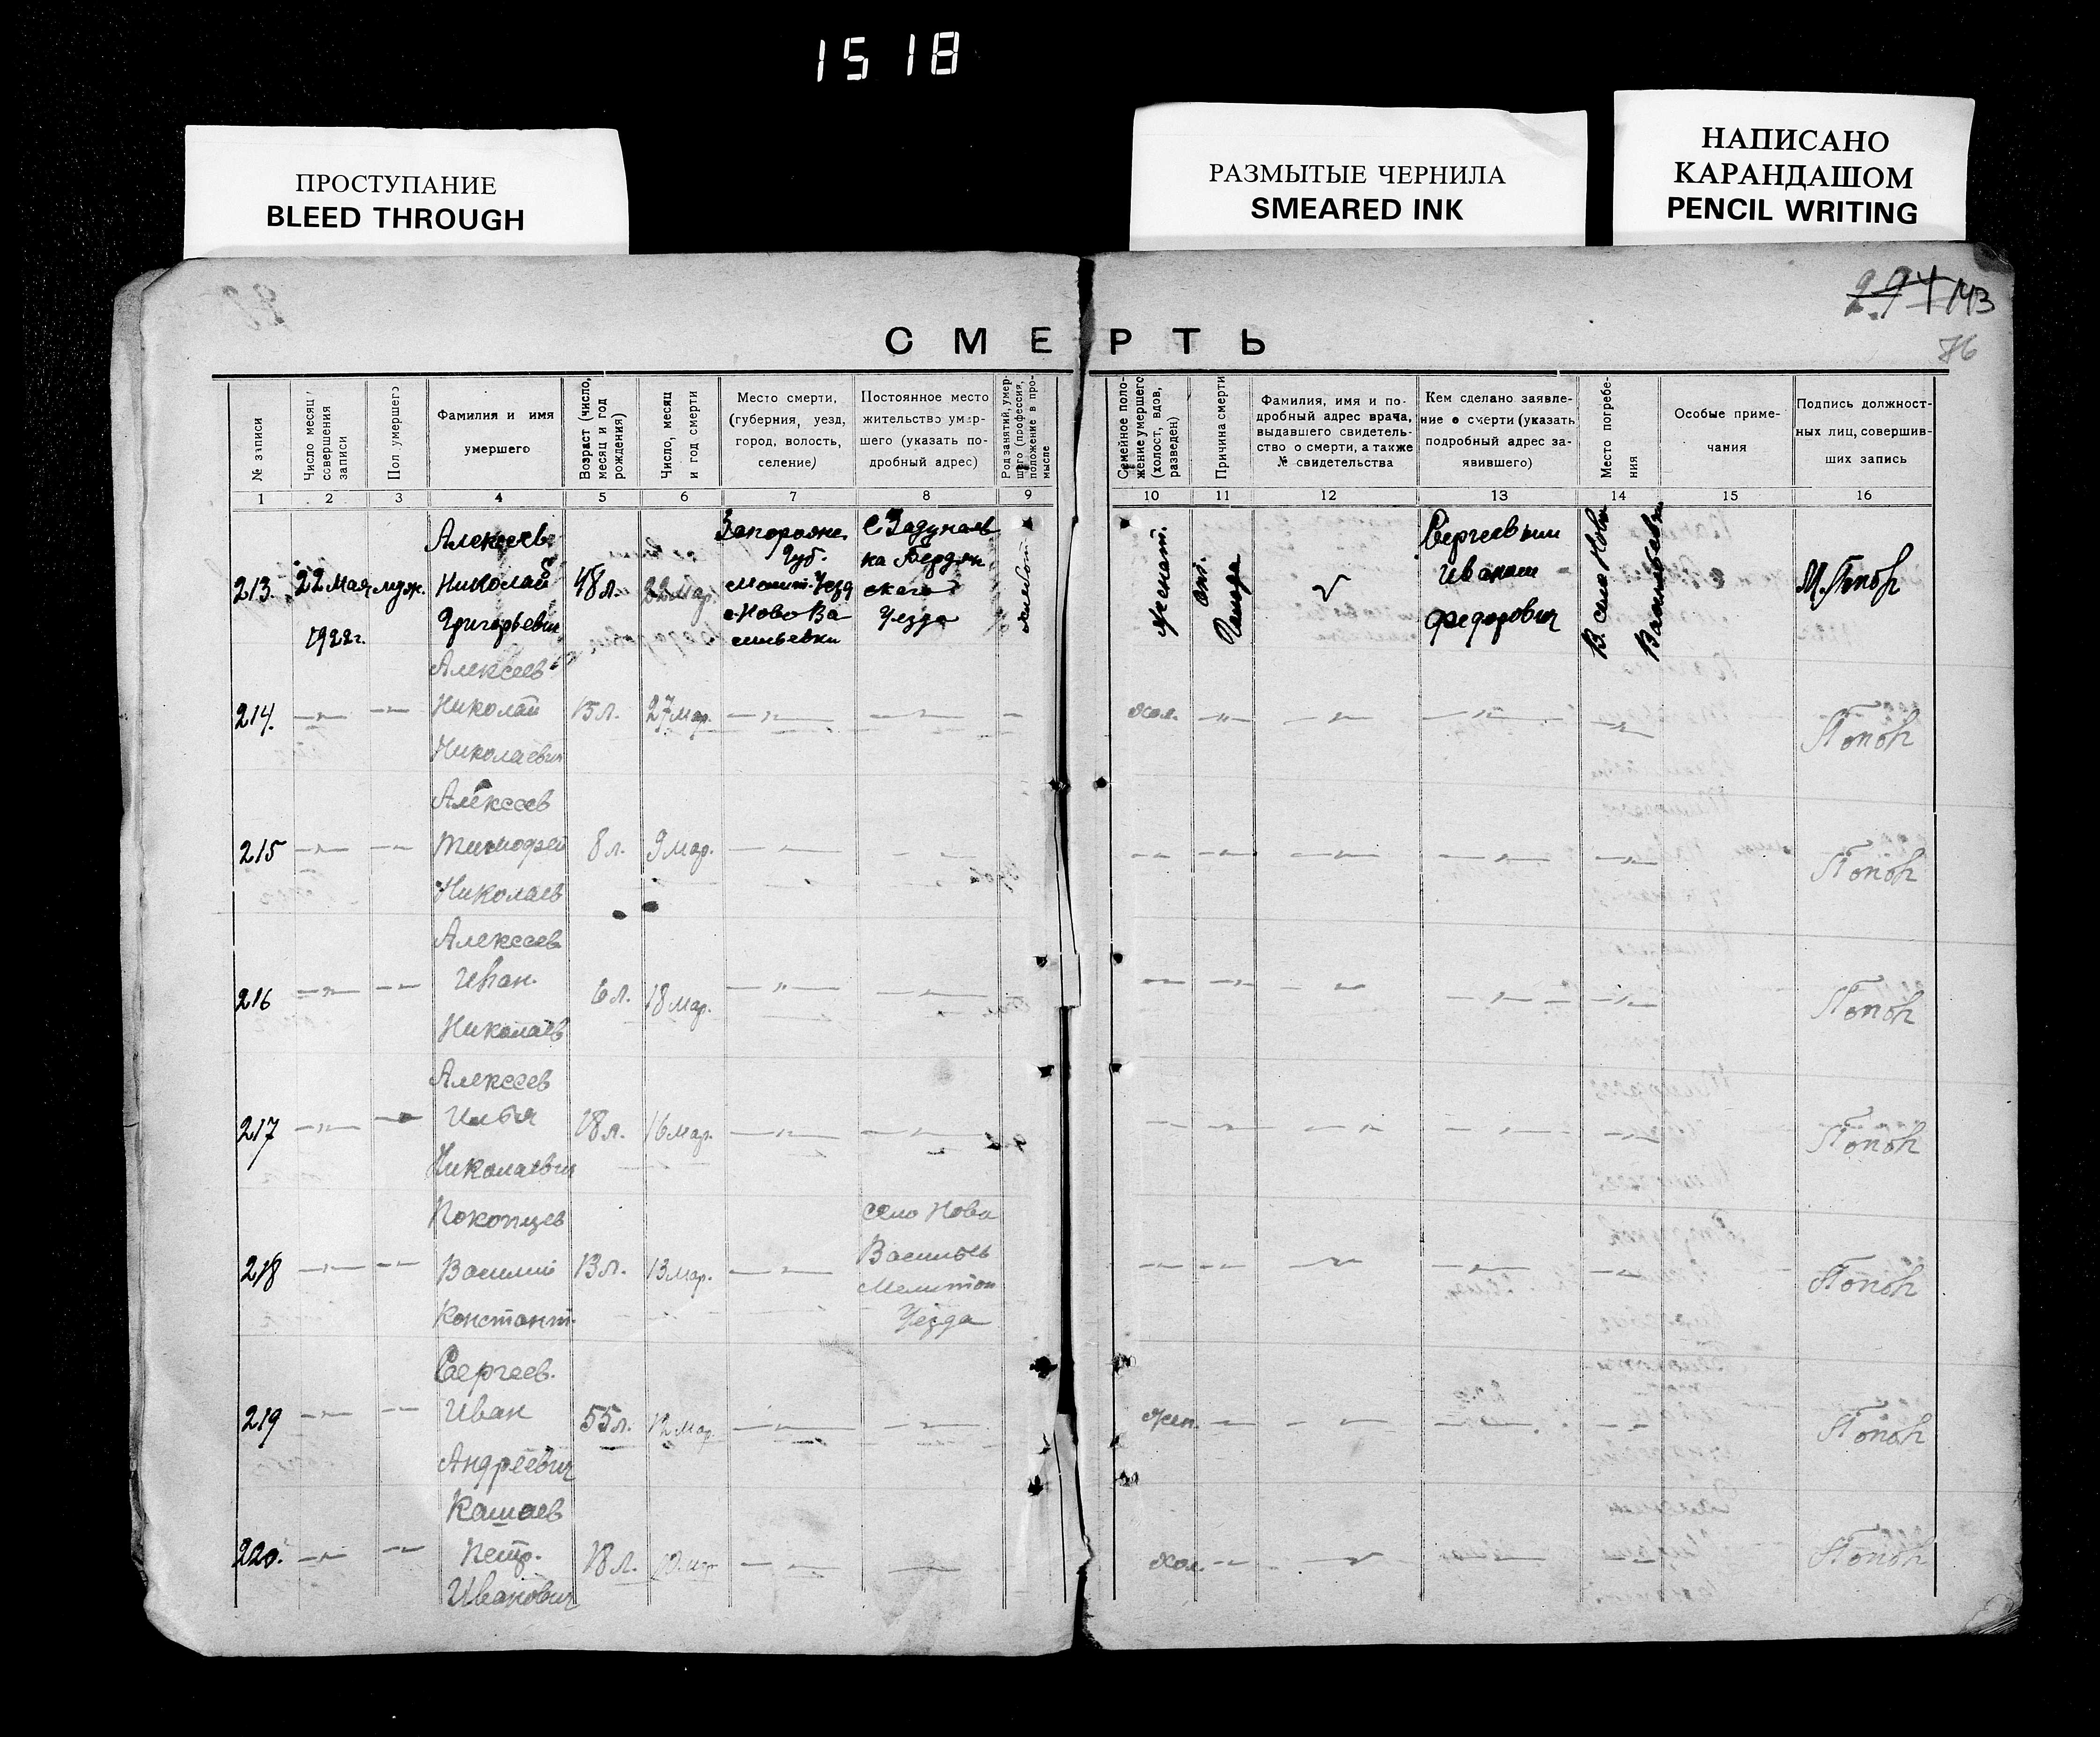 1518
ПРОСТУПАНИЕ
BLEED THROUGH
РАЗМЫТЫЕ ЧЕРНИЛА
SMEARED INK
НАПИСАНО
КАРАНДАШОМ
PENCIL WRITING
143
76
СМЕРТЬ
№ записи
Число месяц, совершения записи
Пол умершего
Фамилия и имя умершего
Возраст (число, месяц и год рождения)
Число, месяц и год смерти
Место смерти, (губерния, уезд, город, волость, селение)
Постоянное место жительство умершего (указать подробный адрес)
Род занятий, умершего (профессия, положение в промысле
Семейное положение умершего (холост, вдов, разведен)
Причина смерти
Фамилия, имя и подробный адрес врача, выдавшего свидетельство о смерти, а также № свидетельства
Кем сделано заявление о смерти (указать подробный адрес заявившего)
Место погребения
Особые примечания
Подпись должностных лиц, совершивших запись
1 2 3 4 5 6 7 8 9 10 11 12 13 14 15 16
213. 22 Мая 1922г. муж. Алексеев Николай Григорьевич 48 л. 22 мар. Запорожс. Губ. Мелит. Уезд с Ново Васильевки с Задунаевка Бердянского Уезда хлебоп. женат. от. Голода Сергеевым Иваном Федорович В. село Ново Васильевки М. Попов
214. — „ — — „ — Алексеев Николай Николаевич 15 л. 27 мар. — „ — — „ — — хол. — „ — — „ — — „ — — „ — Попов
215 — „ — — „ — Алексеев Тимофей Николаев 8 л. 9 мар. — „ — — „ — — „ — — „ — — „ — — „ — — „ — Попов
216 — „ — — „ — Алексеев Иван. Николаев 6 л. 18 мар. — „ — — „ — — „ — — „ — — „ — — „ — — „ — Попов
217 — „ — — „ — Алексеев Илья Николаевич 18 л. 16 мар. — „ — — „ — — „ — — „ — — „ — — „ — — „ — Попов
218 — „ — — „ — Покопцев Василий Констант. 13 л. 13 мар. — „ — село Нова Васильев Мелитоп Уезда — „ — — „ — — „ — — „ — — „ — Попов
219 — „ — — „ — Сергеев. Иван Андреевич 55 л. 12 мар. — „ — — „ — жен. — „ — — „ — — „ — — „ — Попов
220. — „ — — „ — Кашаев Петр. Иванович 18 л. — „ — — „ — хол. — „ — — „ — — „ — — „ — Попов